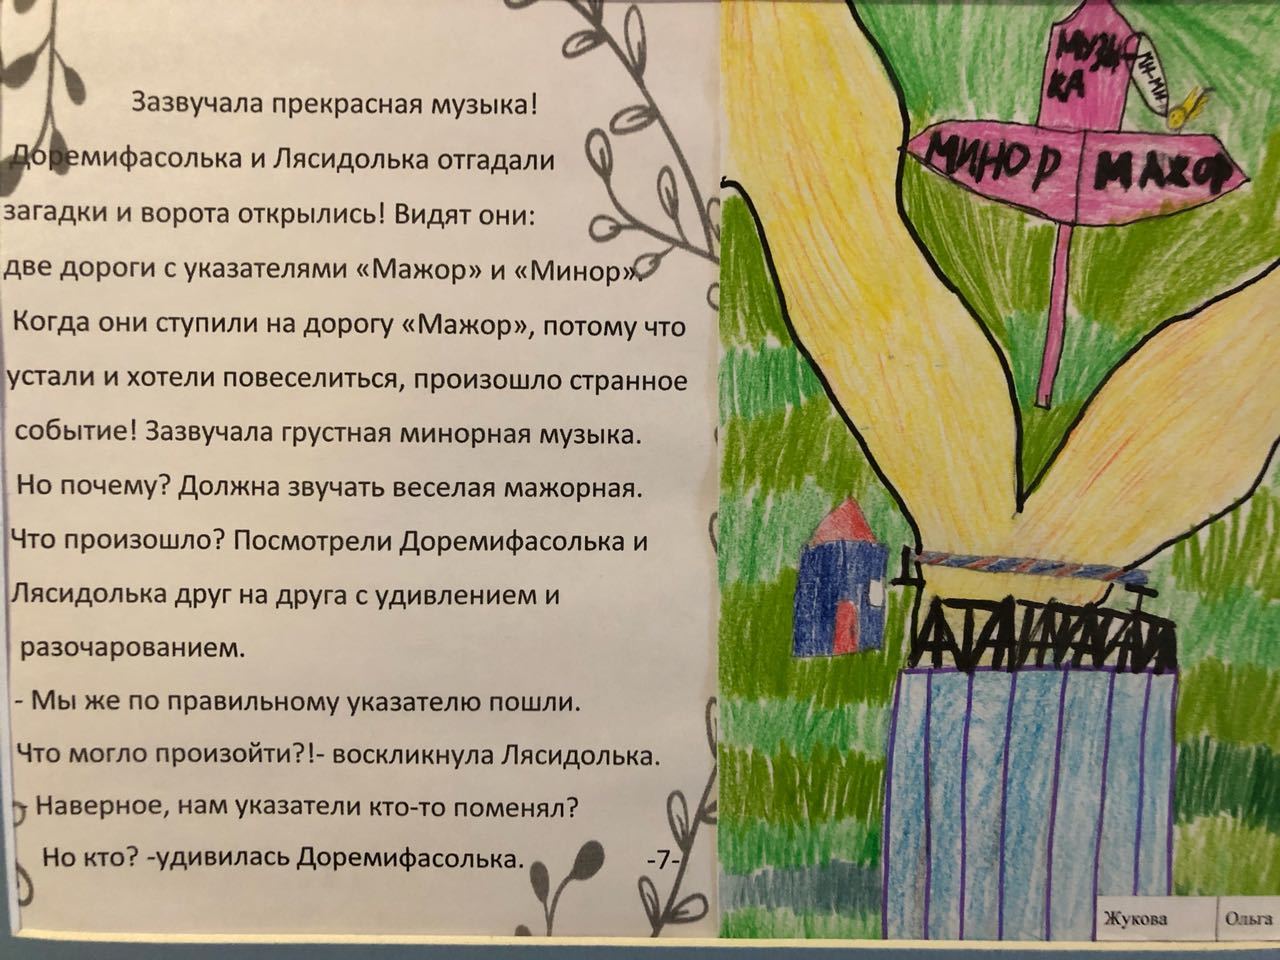 Зазвучала прекрасная музыка!
Доремифасолька и Лясидолька отгадали
загадки и ворота открылись! Видят они:
две дороги с указателями «Мажор» и «Минор».
Когда они ступили на дорогу «Мажор», потому что
устали и хотели повеселиться, произошло странное
событие! Зазвучала грустная минорная музыка.
Но почему? Должна звучать веселая мажорная.
Что произошло? Посмотрели Доремифасолька и
Лясидолька друг на друга с удивлением и
разочарованием.
- Мы же по правильному указателю пошли.
Что могло произойти?!- воскликнула Лясидолька.
Наверное, нам указатели кто-то поменял?
Но кто? -удивилась Доремифасолька.
-7-
МУЗЫ-
КА
МИНОР
МАЖОР
Жукова
Ольга